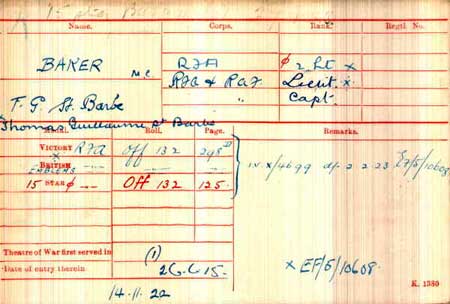 Name. Corps. Rank. Regtl. No.
BAKER M.C. RFA φ 2 Lt x
RFA & RAF Lieut. x.
T. G. St. Barbe " Capt.
Thomas Guillaume St Barbe
Medal. Roll. Page. Remarks.
VICTORY RFA Off 132 298
x
BRITISH
EMBLEMS
IV. X/4699 df 2 2 23 EF/5/10608
15 STAR φ Off 132 125.
Theatre of War first served in (1)
Date of entry therein 26.6.15.
x EF/5/10608.
K. 1380
14.11.22